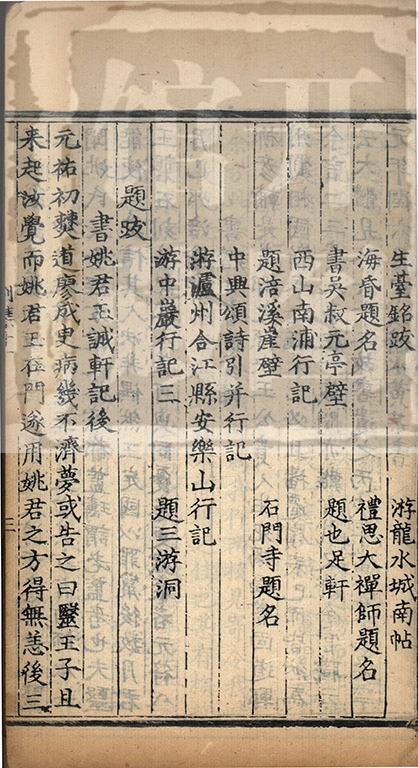 生臺銘跋 游龍水城南帖
海昏題名 禮思大禪師題名
書吳叔元亭壁 題也足軒
西山南浦行記
題涪溪崖壁 石門寺題名
中興頌詩引并行記
游瀘州合江縣安樂山行記
游中巖行記三 題三游洞
題跋
書姚君玉誠軒記後
元祐初僰道廖成叟病幾不濟夢或告之曰毉王子且
来起汝覺而姚君玉在門遂用姚君之方得無恙後三